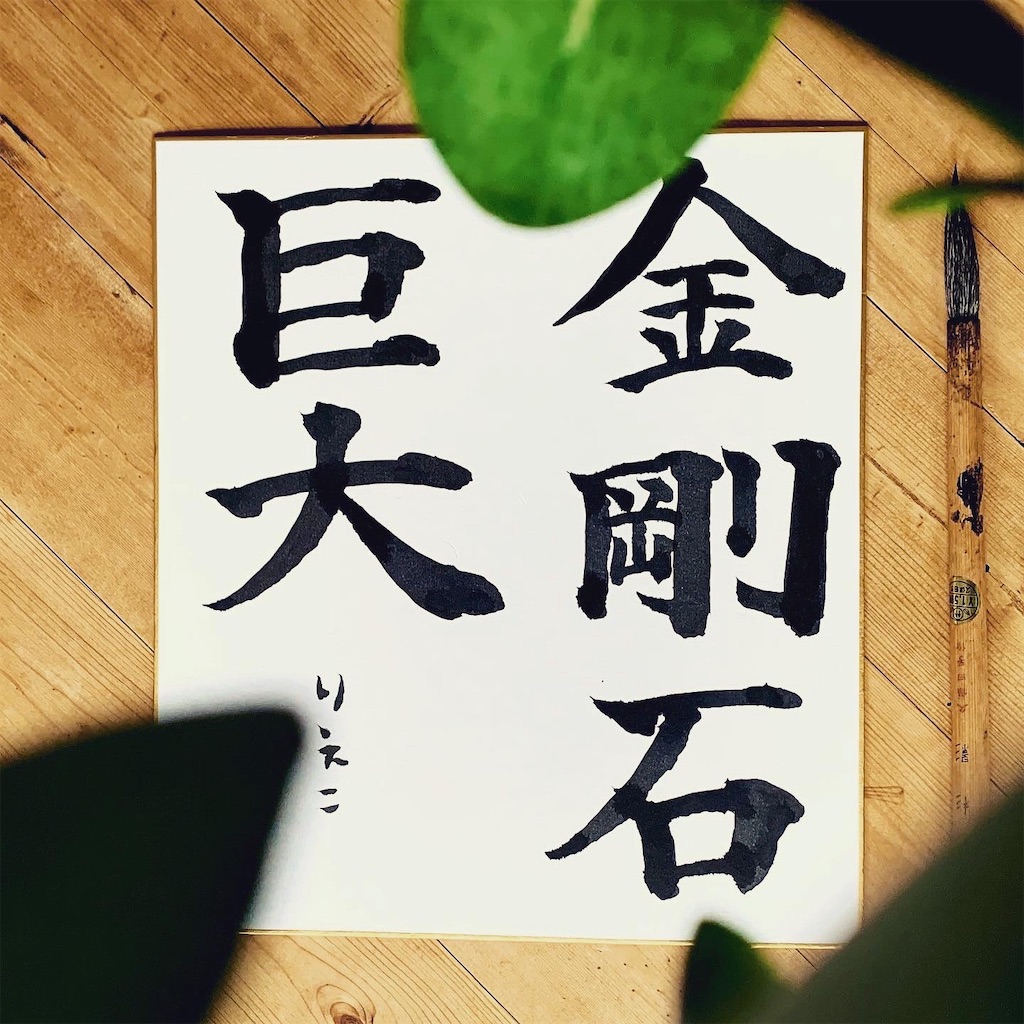 金剛石
巨大
りえこ